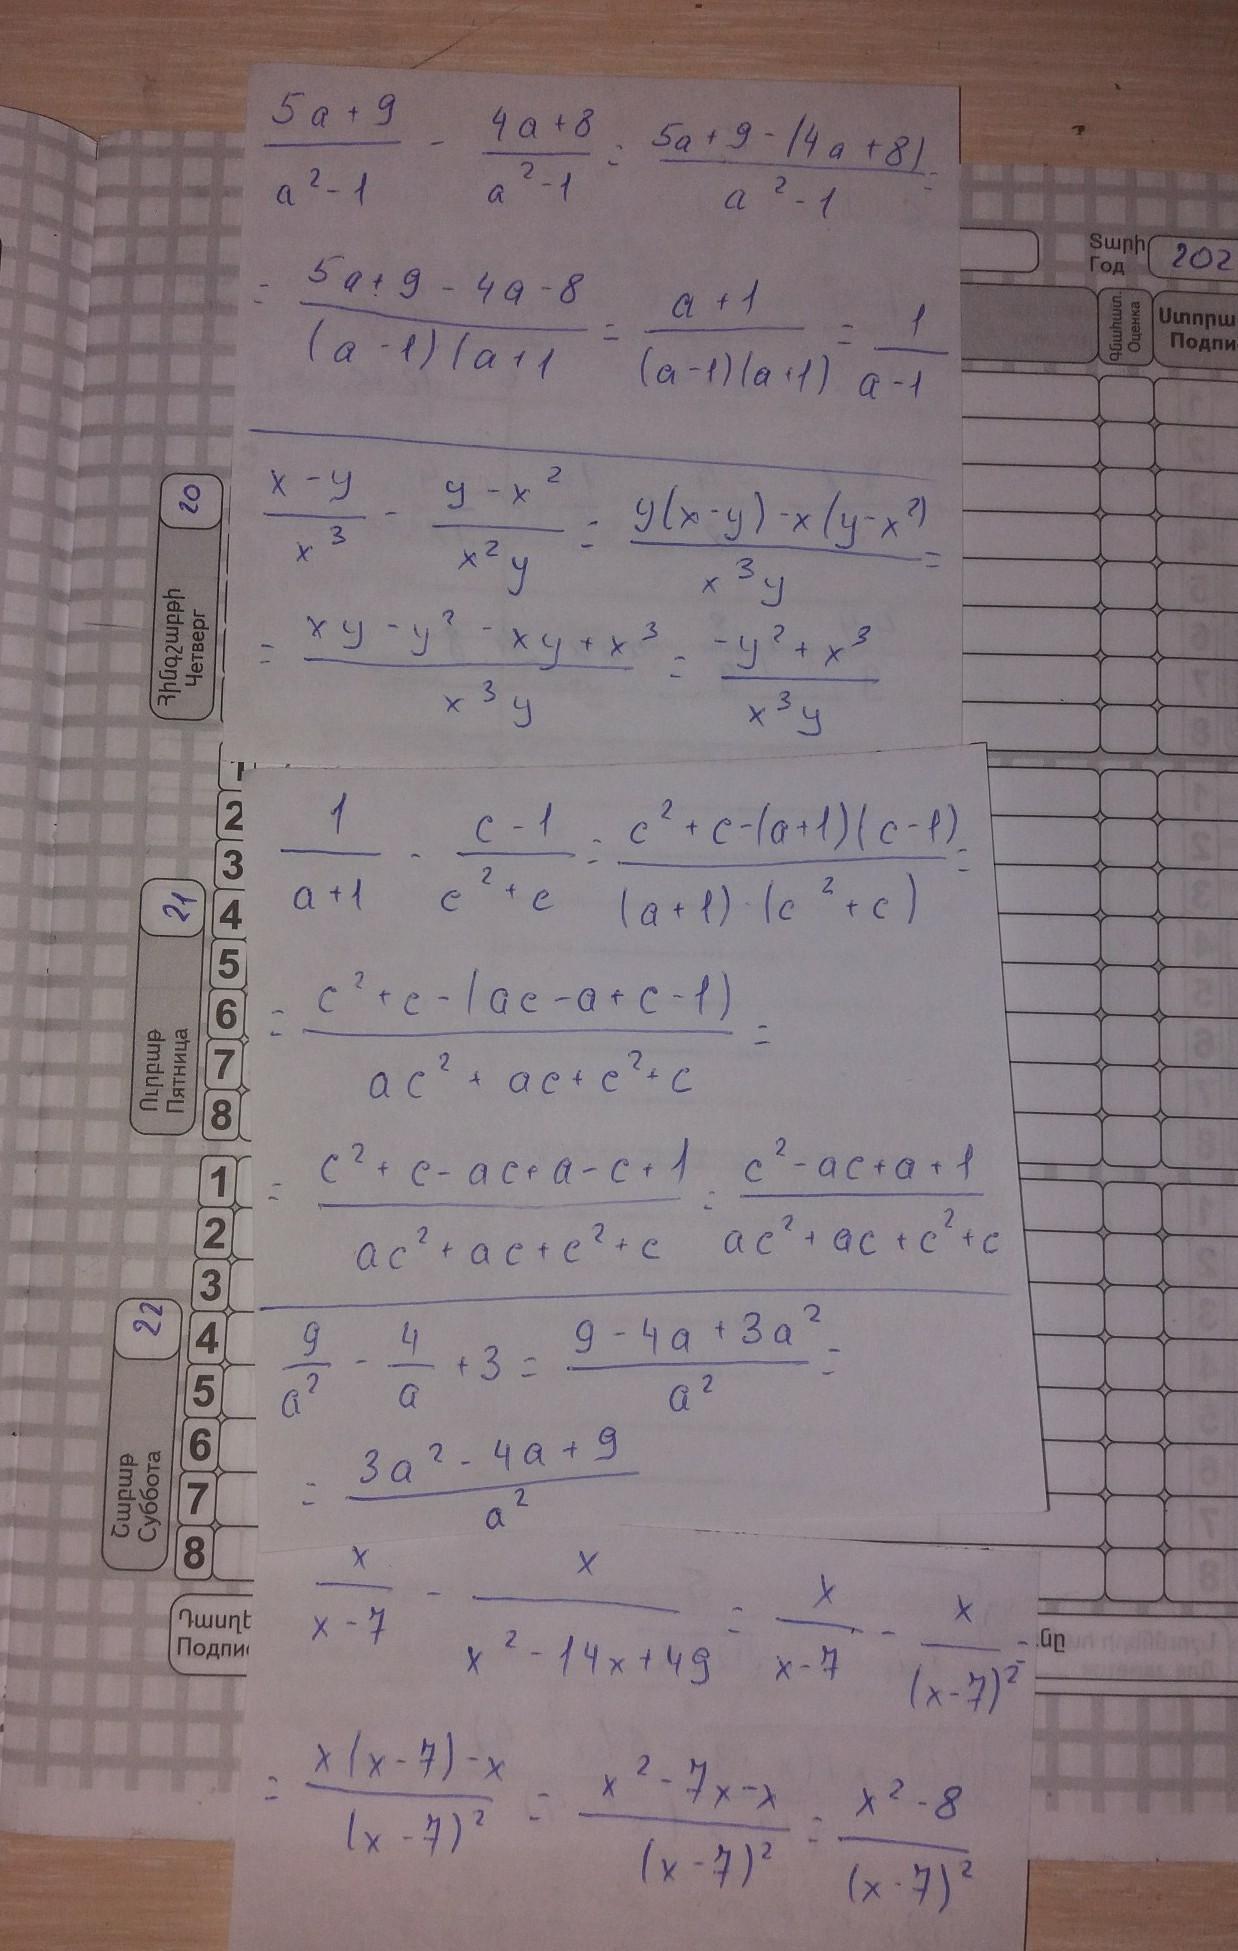 (5a+9)/(a²-1) - (4a+8)/(a²-1) = (5a+9-(4a+8))/(a²-1) =
= (5a+9-4a-8)/((a-1)(a+1) = (a+1)/((a-1)(a+1)) = 1/(a-1)
(x-y)/x³ - (y-x²)/(x²y) = (y(x-y)-x(y-x²))/(x³y) =
= (xy-y²-xy+x³)/(x³y) = (-y²+x³)/(x³y)
1/(a+1) - (c-1)/(c²+c) = (c²+c-(a+1)(c-1))/((a+1)·(c²+c)) =
= (c²+c-(ac-a+c-1))/(ac²+ac+c²+c) =
= (c²+c-ac+a-c+1)/(ac²+ac+c²+c) = (c²-ac+a+1)/(ac²+ac+c²+c)
9/a² - 4/a + 3 = (9-4a+3a²)/a² =
= (3a²-4a+9)/a²
x/(x-7) - x/(x²-14x+49) = x/(x-7) - x/(x-7)² =
= (x(x-7)-x)/(x-7)² = (x²-7x-x)/(x-7)² = (x²-8)/(x-7)²
Տարի
Год
202
Գնահատ.
Оценка
Ստորա
Подпи
20
Հինգշաբթի
Четверг
21
Ուրբաթ
Пятница
22
Շաբաթ
Суббота
1
2
3
4
5
6
7
8
1
2
3
4
5
6
7
8
Դասղե
Подпи
նը